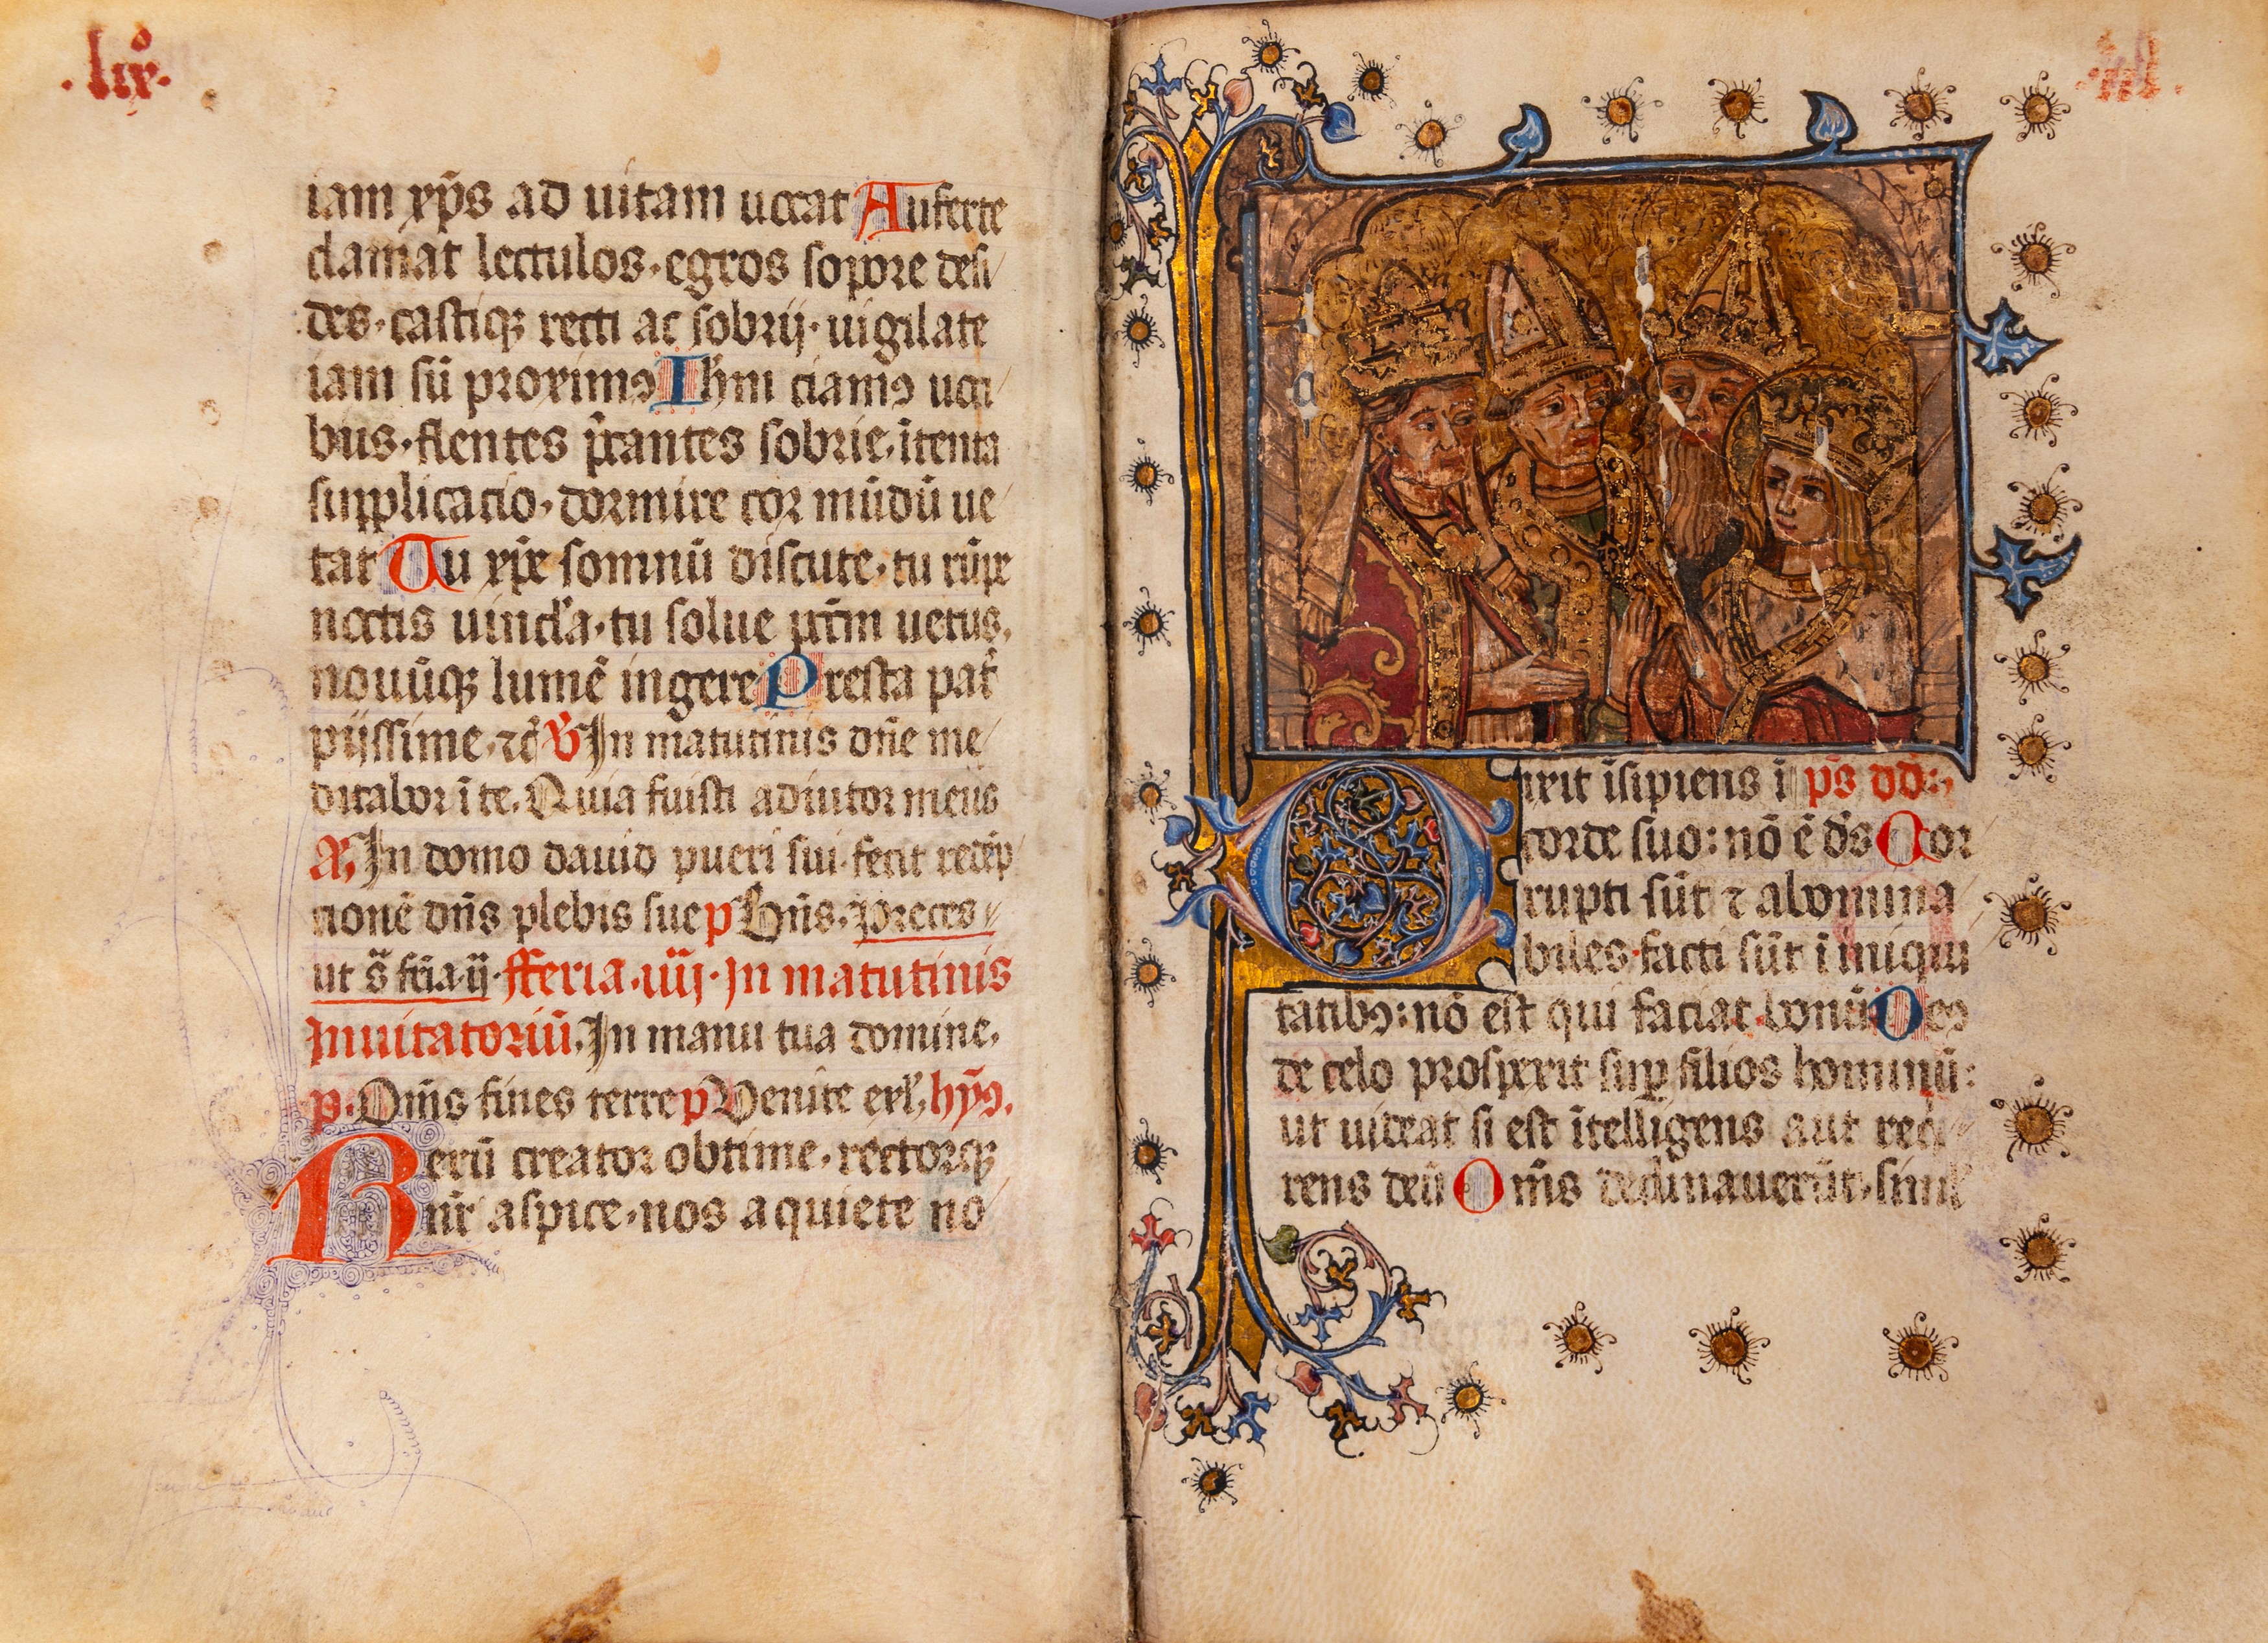 .lixº.
iam xp̄s ad uitam uocat Auferte
clamat lectulos. egros sopore desi/
des. castiqꝫ recti ac sobrij. uigilate
iam sū proximꝯ Ih̄m ciamꝯ uoci/
bus. flentes p̄cantes sobrie. ītenta
supplicacio. dormire cor mūdū ue/
tat Tu xp̄e somnū discute. tu rūpe
noctis uincl̕a. tu solue pc̄c̄m uetus.
nouūqꝫ lumē ingere Presta pat̕
pijssime. ⁊c̄ V̕ In matutinis dn̄e me/
ditabor ī te. Quia fuisti adiutor meus
A. In domo dauid pueri sui. fecit redēp/
tionē dn̄s plebis sue p Bn̄s. preces
ut s̄ fe̕ia. ij. fferia. iiij. In matutinis
Inuitatoriū. In manu tua domine.
p. Om̄s fines terre p Venite exl̕. hȳꝯ.
Rerū creator obtime. rectorqꝫ
nr̄ aspice. nos a quiete no/
Dixit īsipiens ī ps̄ dd̄:
corde suo: nō ē d̄s Cor
rupti sūt ⁊ abomina
biles facti sūt ī iniqui
tatibꝯ: nō est qui faciat bonū Deꝯ
de celo prospexit sup̱ filios hominū:
ut uideat si est ītelligens aut req̕
rens deū Om̄s declinauerūt. simul̕